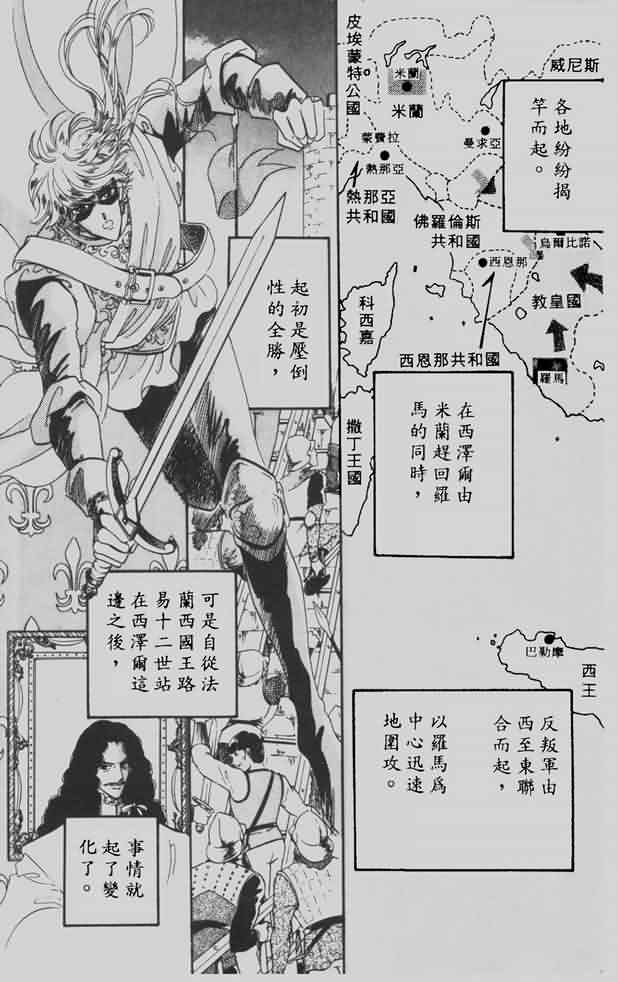 各地紛紛揭
竿而起。
在西澤爾由
米蘭趕回羅
馬的同時，
反叛軍由
西至東聯
合而起，
以羅馬爲
中心迅速
地圍攻。
起初是壓倒
性的全勝，
可是自從法
蘭西國王路
易十二世站
在西澤爾這
邊之後，
事情就
起了變
化了。
皮埃蒙特公國
威尼斯
米蘭
米蘭
蒙費拉
曼求亞
熱那亞
熱那亞
共和國
佛羅倫斯
共和國
烏爾比諾
西恩那
教皇國
科西嘉
西恩那共和國
羅馬
撒丁王國
巴勒摩
西
王